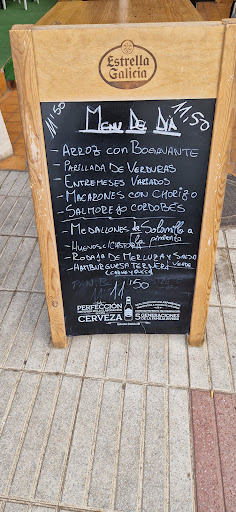 Estrella
Galicia
11'50
MENU DEL DIA
11,50
- ARROZ CON BOGAVANTE
- PARILLADA DE VERDURAS
- ENTREMESES VARIADOS
- MACARONES CON CHORIZO
- SALMOREJO CORDOBÉS
- MEDALLONES de Solomillo a la pimienta
- HUEVOS
- RODAJA DE MERLUZA Y SALSA VERDE
- HAMBURGUESA TERNERA
11'50
PERFECCIÓN
CERVEZA
5 GENERACIONES